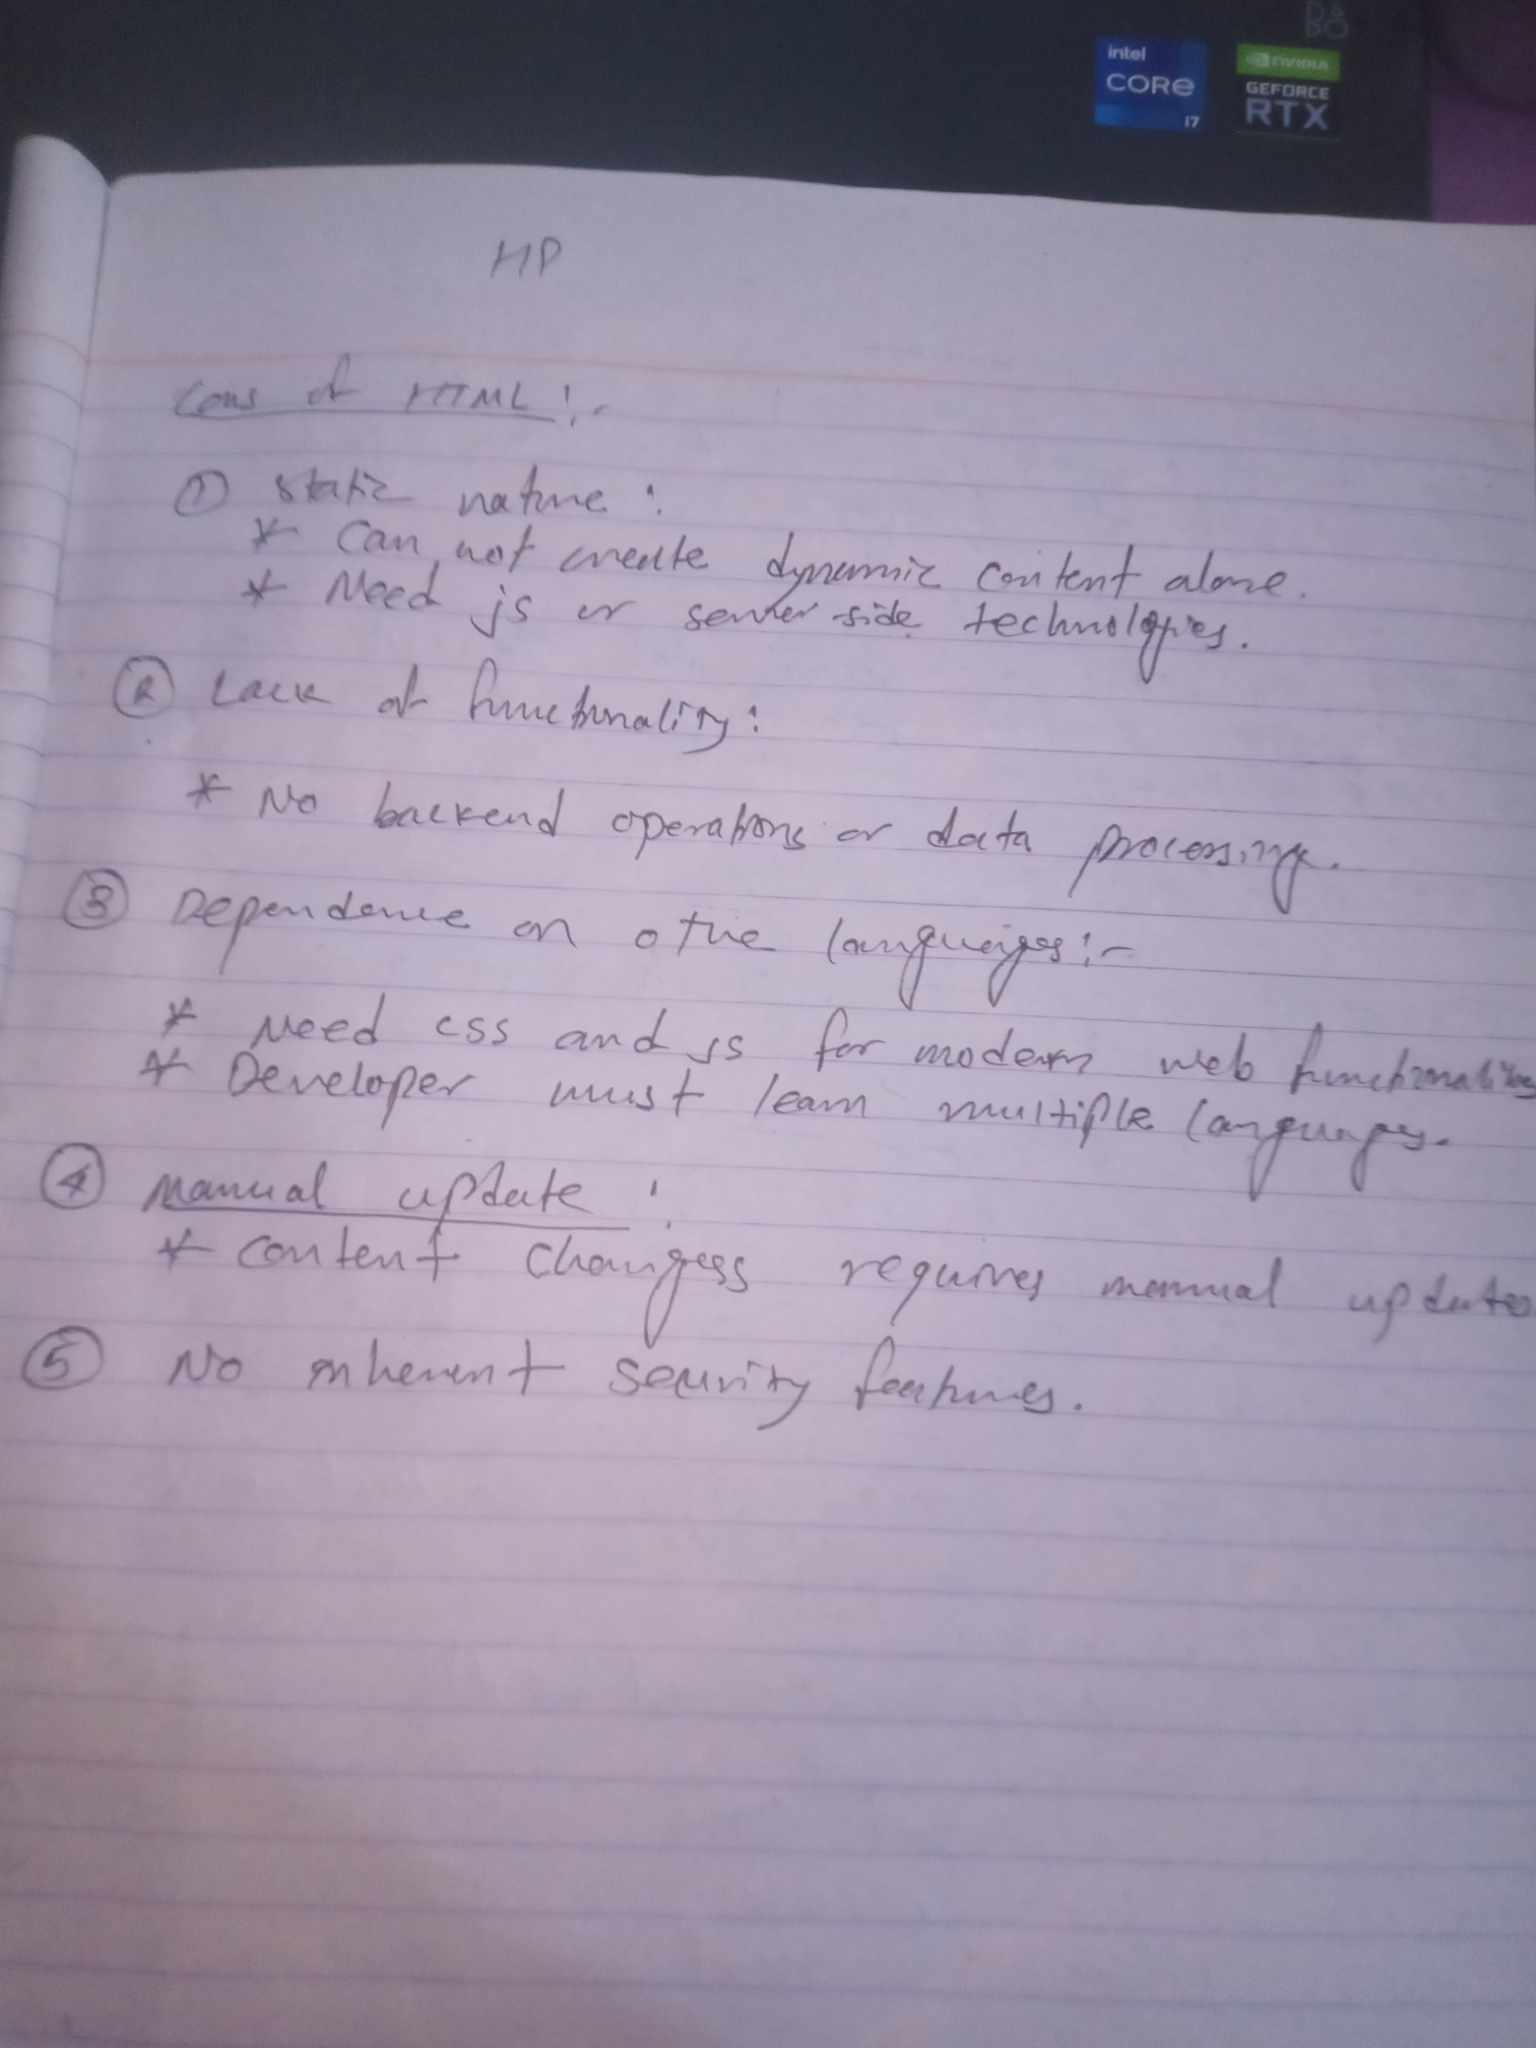 intel
CORE
i7
NVIDIA
GEFORCE
RTX
HP
Cons of HTML :-
① static nature :
* Can not create dynamic content alone.
* Need js or server-side technologies.
② Lack of functionality :
* No backend operations or data processing.
③ Dependence on othe languages :-
* Need css and js for modern web functionalities
* Developer must learn multiple languages.
④ Manual update :
* content changess requires manual updates
⑤ No inherent security features.